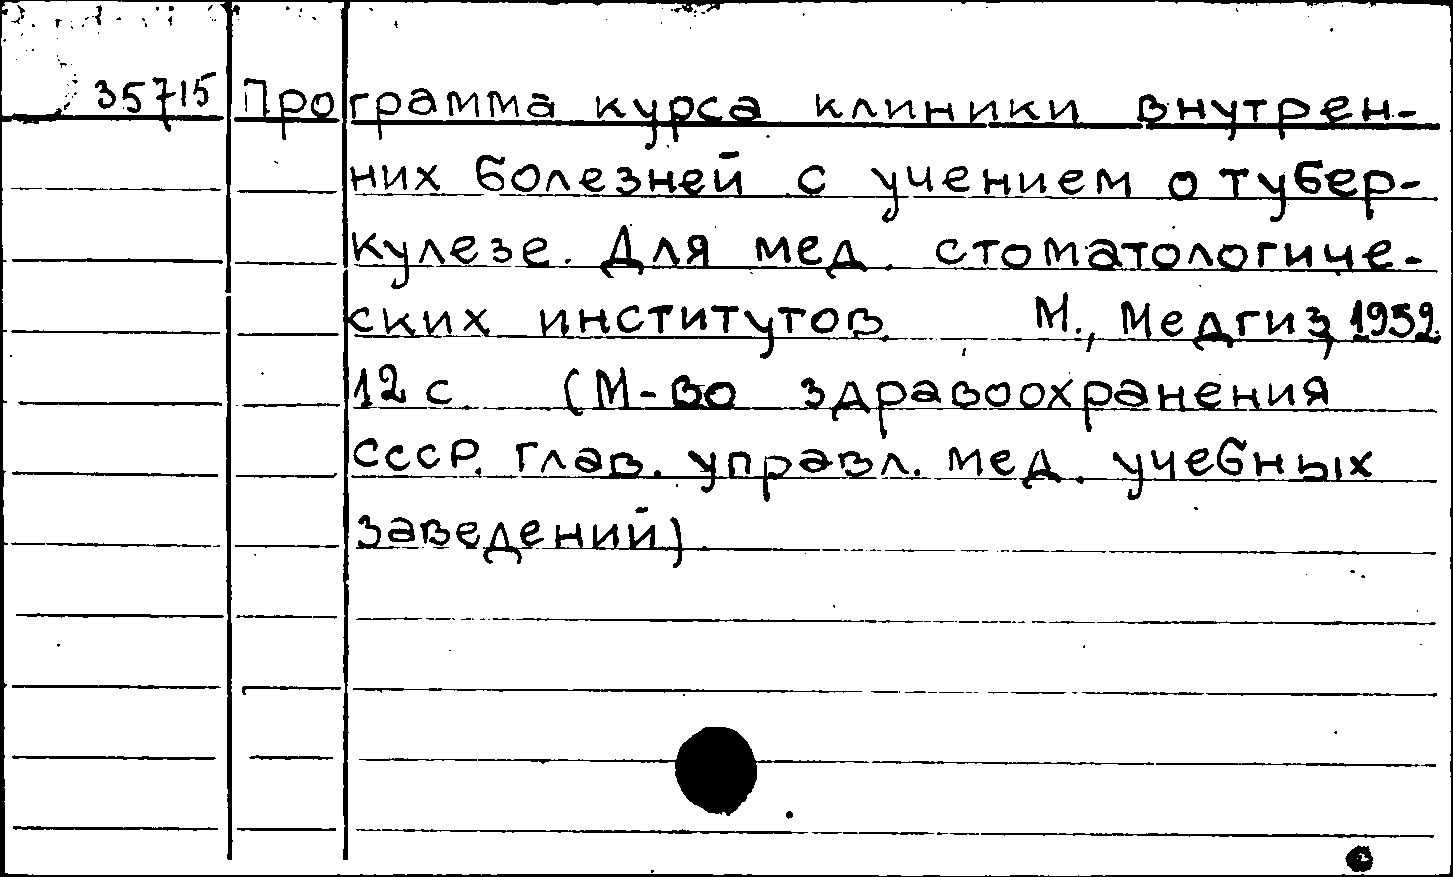 35715 Программа курса клиники внутрен-
них болезней с учением о тубер-
кулезе. Для мед. стоматологиче-
ских институтов. М., Медгиз, 1952.
12 с (М-во здравоохранения
СССР. Глав. управл. мед. учебных
заведений)